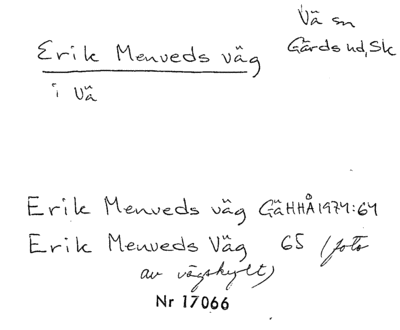 Erik Menveds väg
i Vä
Vä sn
Gärds hd, Sk
Erik Menveds väg GäHHÅ 1974:64
Erik Menveds Väg 65 (foto
av vägskylt)
Nr 17066